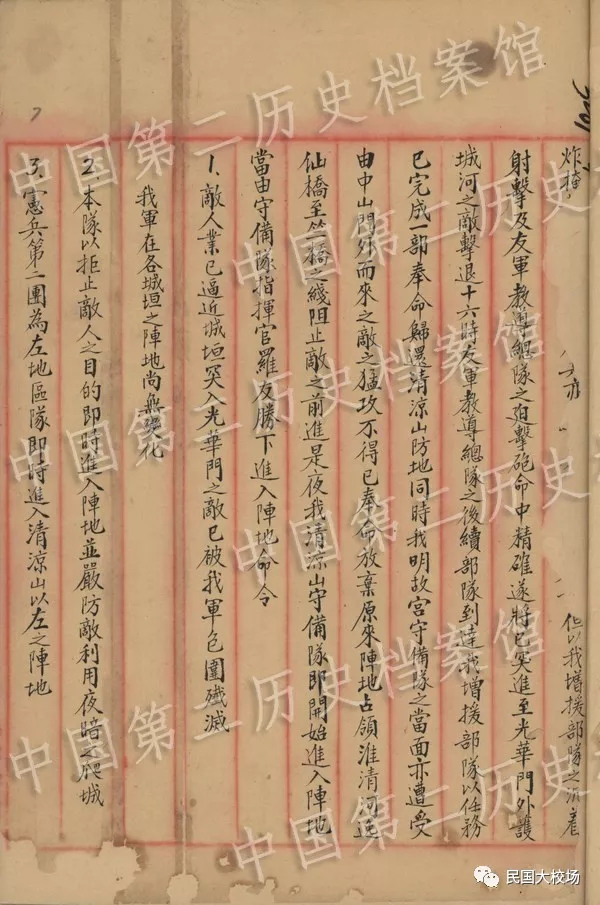 炸掩
亦
但以我增援部隊之沉着
射擊及友軍教導總隊之迫擊砲命中精確遂將已突進至光華門外護
城河之敵擊退十六時友軍教導總隊之後續部隊到達我增援部隊以任務
已完成一部奉命歸還清涼山防地同時我明故宮守備隊之當面亦遭受
由中山門外而來之敵之猛攻不得已奉命放棄原來陣地占領淮清河逸
仙橋至竺橋之綫阻止敵之前進是夜我清涼山守備隊即開始進入陣地
當由守備隊指揮官羅友勝下進入陣地命令
1、敵人業已逼近城垣突入光華門之敵已被我軍包圍殲滅
我軍在各城垣之陣地尚無變化
2、本隊以拒止敵人之目的即時進入陣地並嚴防敵利用夜暗之爬城
3、憲兵第二團為左地區隊即時進入清涼山以左之陣地
7
中国第二历史档案馆
中国第二历史档案馆
中国第二历史档案馆
中国第二历史档案馆
中国第二历史档案馆
民国大校场